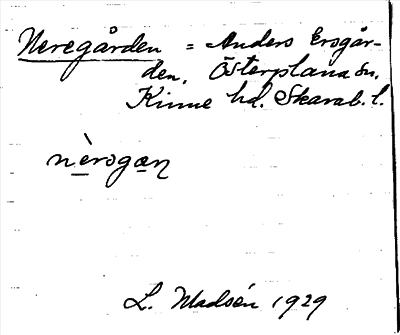 Neregården = Anders Ersgår-
den, Österplana sn,
Kinne hd. Skarab. l.
nèrogæn
L. Madsén 1929